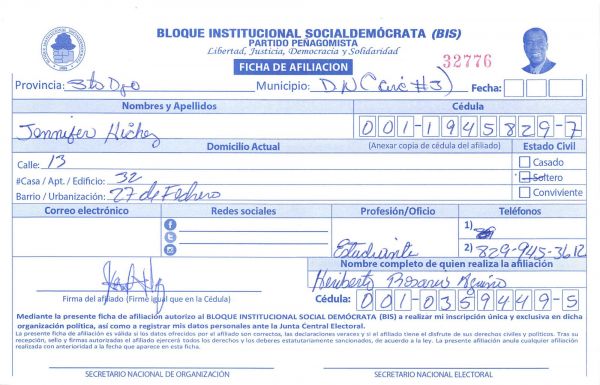 BLOQUE INSTITUCIONAL SOCIALDEMÓCRATA (BIS)
PARTIDO PEÑAGOMISTA
Libertad, Justicia, Democracia y Solidaridad
FICHA DE AFILIACION
32776
Provincia: Sto Dgo Municipio: D.N (circ #3) Fecha:
Nombres y Apellidos Cédula
Jennifer 001-1945829-7
Domicilio Actual (Anexar copia de cédula del afiliado) Estado Civil
Calle: 13 Casado
#Casa / Apt. / Edificio: 32 Soltero
Barrio / Urbanización: 27 de Febrero Conviviente
Correo electrónico Redes sociales Profesión/Oficio Teléfonos
1)
Estudiante 2) 829-945-3612
Nombre completo de quien realiza la afiliación
Heriberto Rosario Aquino
Firma del afiliado (Firme igual que en la Cédula) Cédula: 001-0359449-5
Mediante la presente ficha de afiliación autorizo al BLOQUE INSTITUCIONAL SOCIAL DEMÓCRATA (BIS) a realizar mi inscripción única y exclusiva en dicha
organización política, así como a registrar mis datos personales ante la Junta Central Electoral.
La presente ficha de afiliación es válida si los datos ofrecidos por el afiliado son correctos, las declaraciones veraces y si el afiliado tiene el disfrute de sus derechos civiles y políticos. Tras su
recepción, sello y firmas autorizadas el afiliado ejercerá todos los derechos y los deberes estatutariamente sancionados, de acuerdo a la ley. La presente afiliación anula cualquier afiliación
realizada con anterioridad a la fecha que aparece en esta ficha.
SECRETARIO NACIONAL DE ORGANIZACIÓN SECRETARIO NACIONAL ELECTORAL